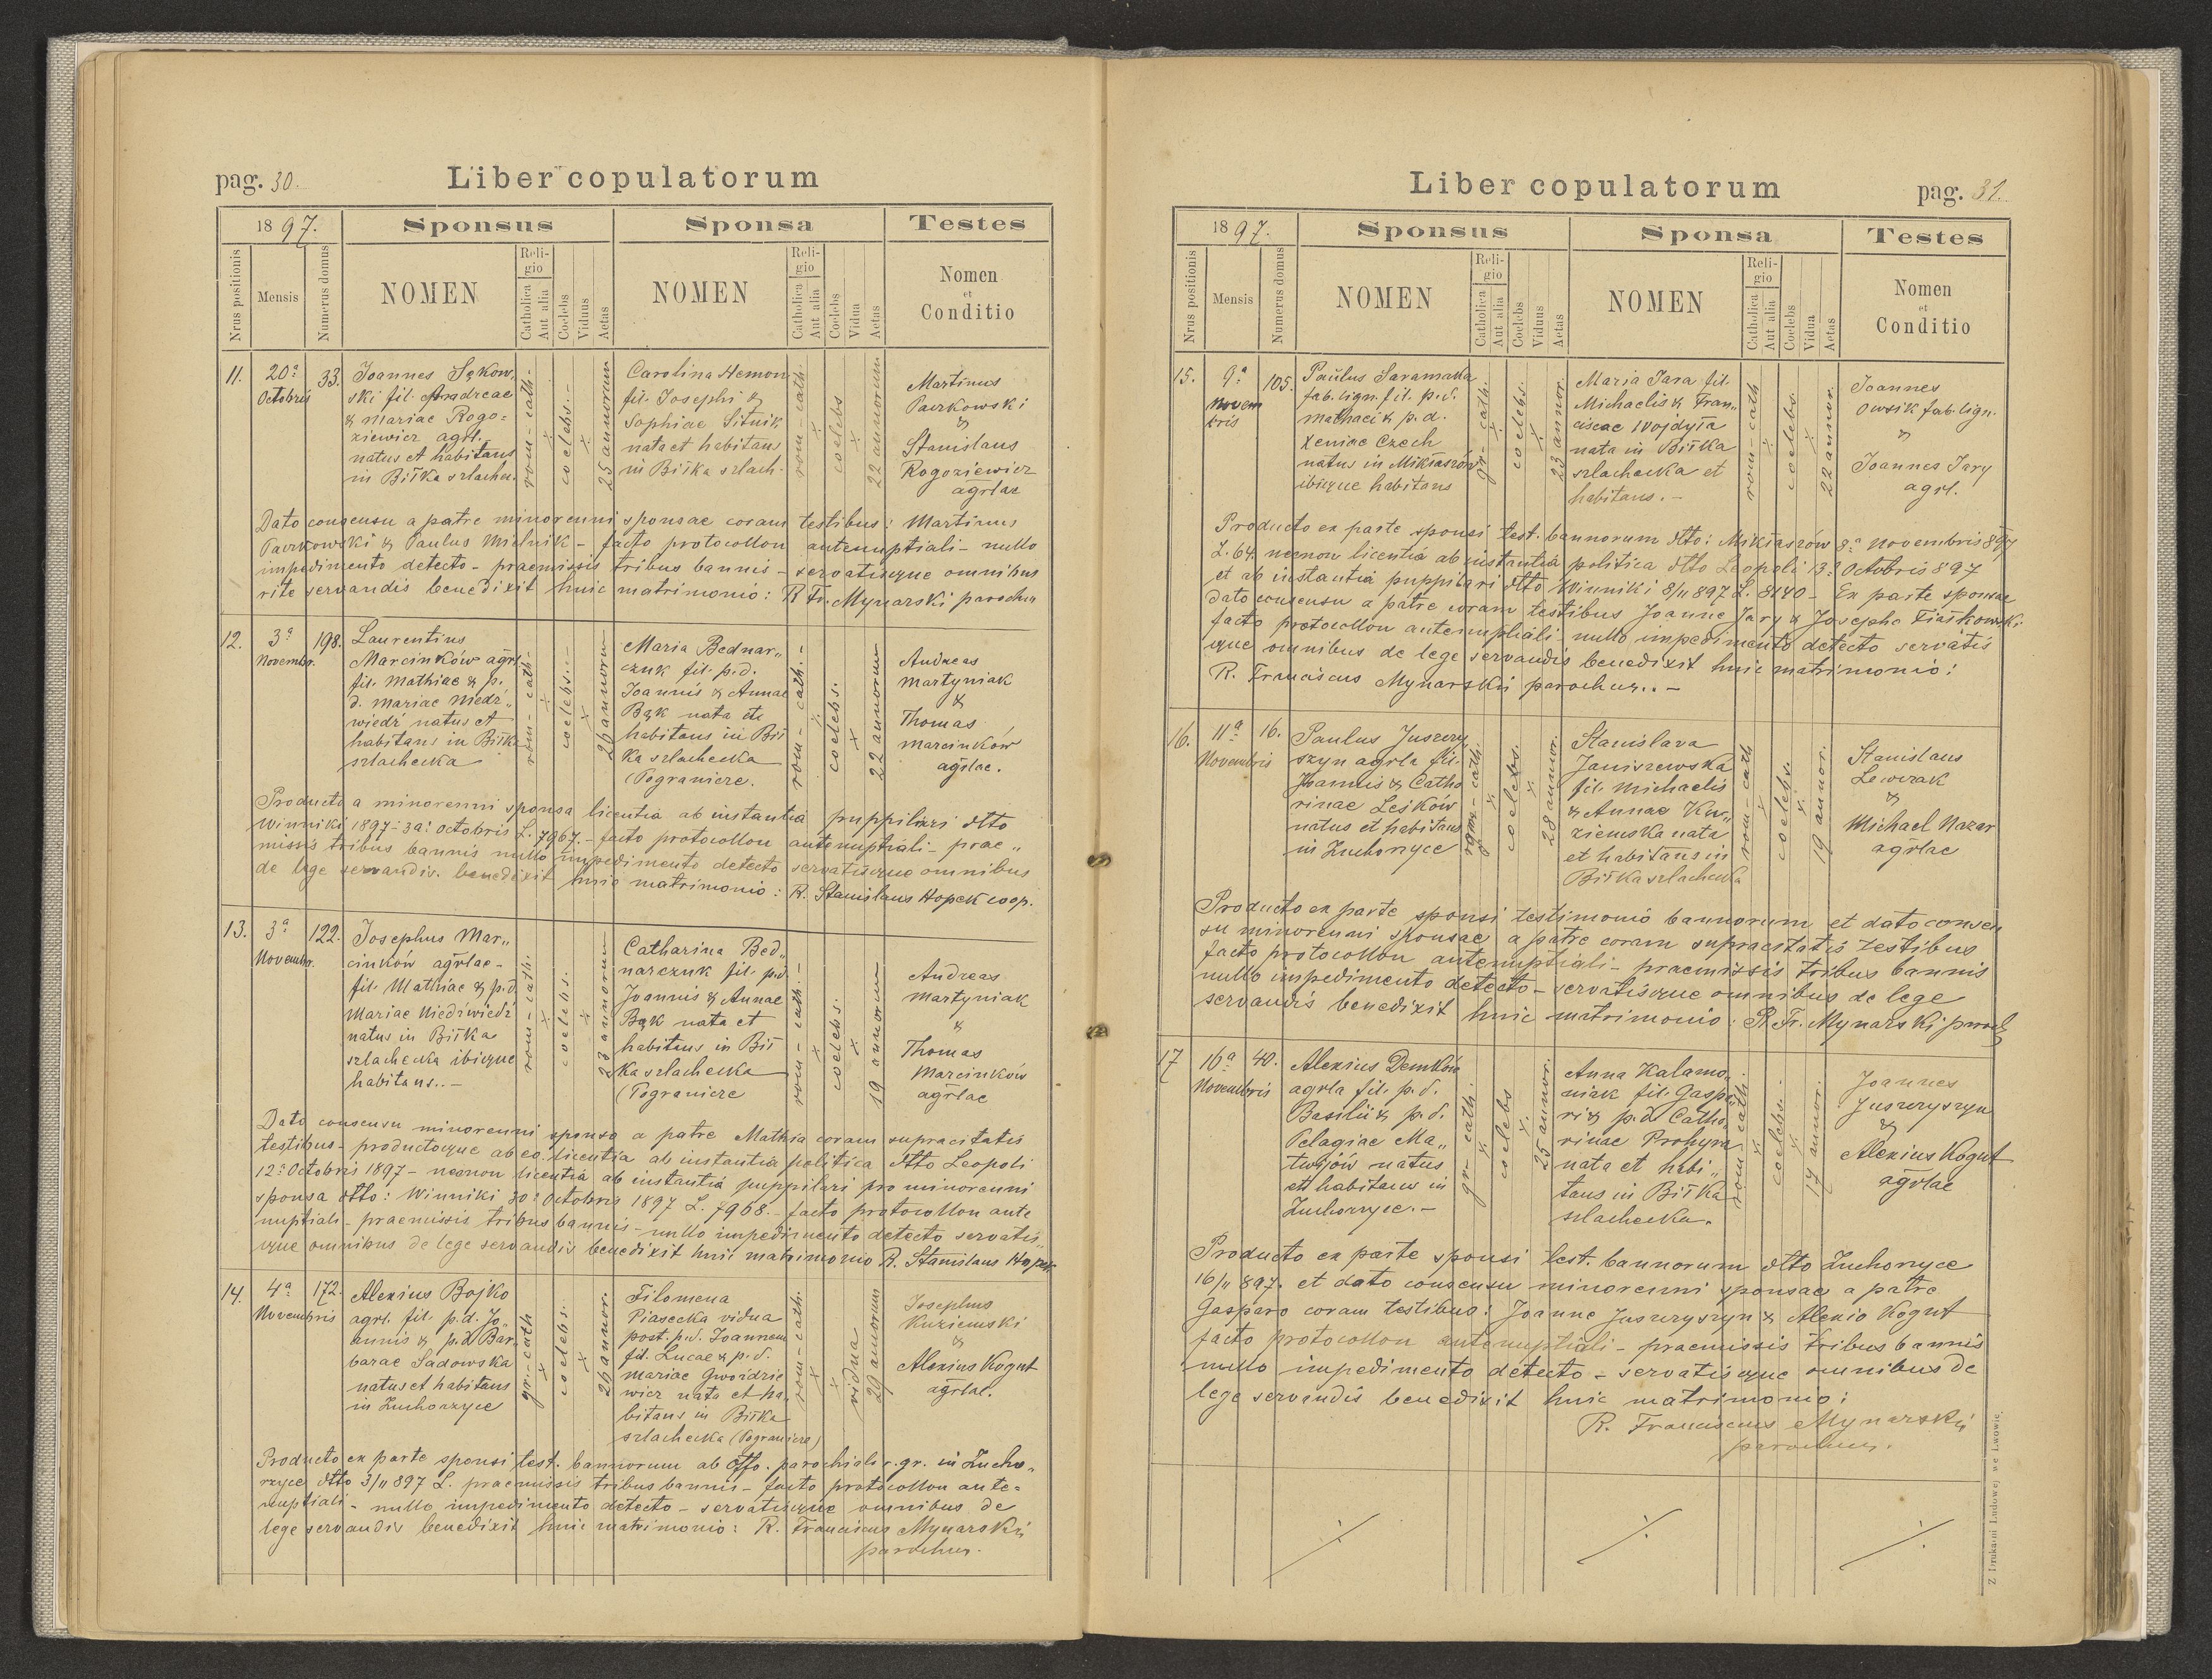 pag. 30.
Liber copulatorum
1897.
Sponsus
Sponsa
Testes
Nrus positionis
Mensis
Numerus domus
NOMEN
Religio
Catholica
Aut alia
Coelebs
Viduus
Aetas
NOMEN
Religio
Catholica
Aut alia
Coelebs
Vidua
Aetas
Nomen
et
Conditio
11.
20a
Octobris
33.
Joannes Sąkow„
ski fil. Andreae
& Mariae Rogo=
ziewicz agrl.
natus et habitans
in Biłka szlachec.
rom-cath-
x
coelebs.-
x
25 annorum
Carolina Hemon
fil. Josephi &
Sophiae Sitnik
nata et habitans
in Biłka szlach.
rom-cath.
x
coelebs
x
22 annorum
Martinus
Paczkowski
&
Stanislaus
Rogoziewicz
agrlae
Dato consensu a patre minorenni sponsae coram testibus: Martinus
Paczkowski & Paulus Mielnik - facto protocollon antenuptiali - nullo
impedimento detecto - praemissis tribus bannis - servatisque omnibus
rite servandis benedixit huic matrimonio: R Fr. Mynarski parochus
12.
3a
Novembr.
198.
Laurentius
Marcinków agrl.
fil. Mathiae & p.
d. Mariae Niedź„
wiedź natus et
habitans in Biłka
szlachecka
rom-cath-
x
coelebs.-
x
26 annorum
Maria Bednar„
czuk fil. p.d.
Joannis & Annae
Bąk nata et
habitans in Bił
ka szlachecka
(Pogranicze.
rom-cath.-
x
coelebs.
x
22 annorum
Andreas
Martyniak
&
Thomas
Marcinków
agrlae.
Producta a minorenni sponsa licentia ab instantia puppilari dtto
Winniki 1897 30a Octobris L. 7967.- facto protocollon antenuptiali - prae„
missis tribus bannis nullo impedimento detecto servatisque omnibus
de lege servandis. benedixit huic matrimonio: R. Stanislaus Hopek coop.
13.
3a
Novembr.
122.
Josephus Mar„
cinków agrlae-
fil. Mathiae & p.d.
Mariae Niedźwiedź
natus in Biłka
szlachecka ibique
habitans..-
rom-cath.
x
coelebs.
x
23 annorum
Catharina Bed„
narczuk fil. p.d.
Joannis & Annae
Bąk nata et
habitans in Bił
ka szlachecka
(Pogranicze
rom-cath.-
x
coelebs.
x
19 annorum
Andreas
Martyniak
&
Thomas
Marcinków
agrlae
Dato consensu minorenni sponso a patre Mathia coram supracitatis
testibus - productoque ab eo licentia ab instantia politica dtto Leopoli
12a Octobris 1897 - necnon licentia ab instantia puppilari pro minorenni
sponsa dtto: Winniki 30a Octobris 1897 L. 7968.- facto protocollon ante
nuptiali - praemissis tribus bannis - nullo impedimento detecto servatis„
que omnibus de lege servandis benedixit huic matrimonio R. Stanislaus Hopek
14.
4a
Novembris
172.
Alexius Bojko
agrl. fil. p.d. Jo„
annis & p.d. Bar„
barae Sadowska
natus et habitans
in Zuchorzyce
gr.-cath
x
coelebs.
x
26 annor.
Filomena
Piasecka vidua
post. p.d. Joannem
fil. Lucae & p.d.
Mariae Gwoździe
wicz nata et ha„
bitans in Biłka
szlachecka (Pogranicze)
rom-cath.
x
x
vidua
29 annorum
Josephus
Kuziemski
&
Alexius Kogut
agrlae.
Producto ex parte sponsi test. bannorum ab Offo. parochiali r. gr. in Zucho„
rzyce dtto 3/11 897 L. praemissis tribus bannis - facto protocollon ante=
nuptiali - nullo impedimento detecto - servatisque omnibus de
lege servandis benedixit huic matrimonio: R. Franciscus Mynarskii
parochus.
Liber copulatorum
pag. 31.
1897.
Sponsus
Sponsa
Testes
Nrus positionis
Mensis
Numerus domus
NOMEN
Religio
Catholica
Aut alia
Coelebs
Viduus
Aetas
NOMEN
Religio
Catholica
Aut alia
Coelebs
Vidua
Aetas
Nomen
et
Conditio
15.
9a
Novem
bris
105.
Paulus Saramaka
fab. lign. fil. p.d.
Mathaei & p.d.
Xeniae Czech
natus in Mikłaszów
ibique habitans
gr-cath.
x
coelebs.
x
23 annor.
Maria Jara fil.
Michaelis & Fran„
ciscae Wojdyła
nata in Biłka
szlachecka et
habitans.-
rom-cath
x
coelebs.
x
22 annor.
Joannes
Owsik fab. lign.
&
Joannes Jary
agrl.
Producto ex parte sponsi test. bannorum dtto: Mikłaszów 8a Novembris 897
L. 64. necnon licentia ab instantia politica dtto Leopoli 13a Octobris 897
et ab instantia puppilari dtto Winniki 8/11 897 L. 8140 - Ex parte sponsae
dato consensu a patre coram testibus Joanne Jary & Josepho Fiałkowski
facto protocollon antenuptiali nullo impedimento detecto servatis
que omnibus de lege servandis benedixit huic matrimonio:
R. Franciscus Mynarskii parochus..-
16.
11a
Novembris
16.
Paulus Juszczy„
szyn agrla fil.
Joannis & Catha
rinae Leśków
natus et habitans
in Zuchorzyce
x
coelebs.
x
28 annor.
Stanislava
Janiszewska
fil. Michaelis
& Annae Ku„
ziemska nata
et habitans in
Biłka szlachecka
rom-cath
x
coelebs.
x
19 annor.
Stanislaus
Lewczak
&
Michael Nazar
agrlae
Producto ex parte sponsi testimonio bannorum et dato consen
su minorenni sponsae a patre coram supracitatis testibus
facto protocollon antenuptiali - praemissis tribus bannis
nullo impedimento detecto - servatisque omnibus de lege
servandis benedixit huic matrimonio: R. Fr. Mynarski paroch
17
16a
Novembris
40.
Alexius Demków
agrla fil. p.d.
Basilii & p.d.
Pelagiae Ma„
twijów natus
et habitans in
Zuchorzyce.-
gr-cath.
x
coelebs
x
25 annor.
Anna Kalamo„
niak fil. Gaspa
ri & p.d. Catha
rinae Prohyra
nata et habi„
tans in Biłka
szlachecka.
rom. cath.
x
coelebs.
x
17 annor.
Joannes
Juszczyszyn
&
Alexius Kogut
agrlae
Producto ex parte sponsi test. bannorum dtto Zuchorzyce
16/11 897. et dato consensu minorenni sponsae a patre
Gasparo coram testibus: Joanne Juszczyszyn & Alexio Kogut
facto protocollon antenuptiali - praemissis tribus bannis
nullo impedimento detecto - servatisque omnibus de
lege servandis benedixit huic matrimonio:
R. Franciscus Mynarskii
parochus.
Z Drukarni Ludowej we Lwowie.